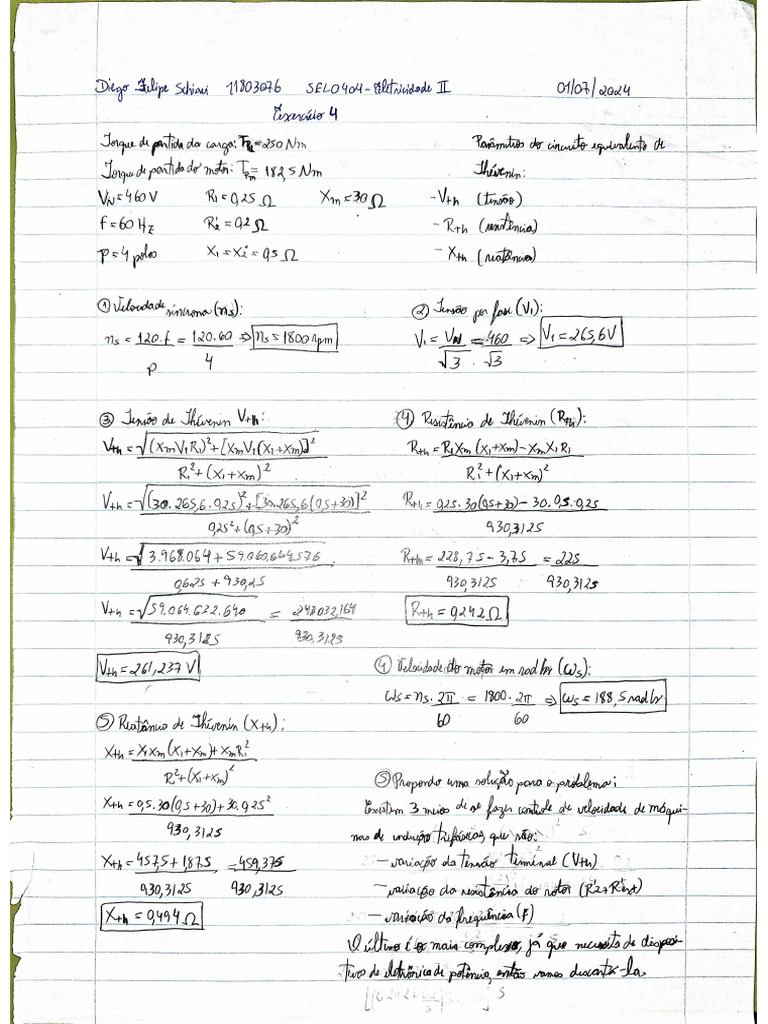 Diego Felipe Schiavi 11803076 SEL0404-Eletricidade II 01/07/2024
Exercício 4
Torque de partida da carga: TPL=250 Nm
Torque de partida do motor: TPm= 182,5 Nm
VN=460V R1=0,25 Ω Xm=30 Ω
f=60 Hz R2'=0,2 Ω
p=4 polos X1=X2'=0,5 Ω
Parâmetros do circuito equivalente de
Thévenin:
-Vth (tensão)
-Rth (resistência)
-Xth (reatância)
① Velocidade síncrona (ns):
ns = 120.f/p = 120.60/4 => ns=1800 rpm
② Tensão por fase (V1):
V1 = VN/√3 = 460/√3 => V1=265,6V
③ Tensão de Thévenin Vth:
Vth=√((XmV1R1)²+[XmV1(X1+Xm)]²)/(R1²+(X1+Xm)²)
Vth=√((30.265,6.0,25)²+[30.265,6(0,5+30)]²)/(0,25²+(0,5+30)²)
Vth=√(3.968.064+59.060.664.576)/(0,625+930,25)
Vth=√(59.064.632.640)/930,3125 = 243032,164/930,3125
Vth=261,237 V
(4) Resistência de Thévenin (Rth):
Rth=(R1Xm(X1+Xm)-XmX1R1)/(R1²+(X1+Xm)²)
Rth=(0,25.30(0,5+30)-30.0,5.0,25)/930,3125
Rth=(228,75-3,75)/930,3125 = 225/930,3125
Rth=0,242Ω
④ Velocidade do motor em rad/s (ωs):
ωs=ns.2π/60 = 1800.2π/60 => ωs=188,5 rad/s
⑤ Reatância de Thévenin (Xth):
Xth=(X1Xm(X1+Xm)+XmR1²)/(R1²+(X1+Xm)²)
Xth=(0,5.30(0,5+30)+30.0,25²)/930,3125
Xth=(457,5+1,875)/930,3125 = 459,375/930,3125
Xth=0,494Ω
⑤ Propondo uma solução para o problema:
Existem 3 meios de se fazer controle de velocidade de máqui
nas de indução trifásicas, que são:
-variação da tensão terminal (Vth)
-variação da resistência do rotor (R2+Rext)
-variação da frequência (f)
O último é o mais complexo, já que necessita de disposi-
tivos de eletrônica de potência, então vamos descartá-la.